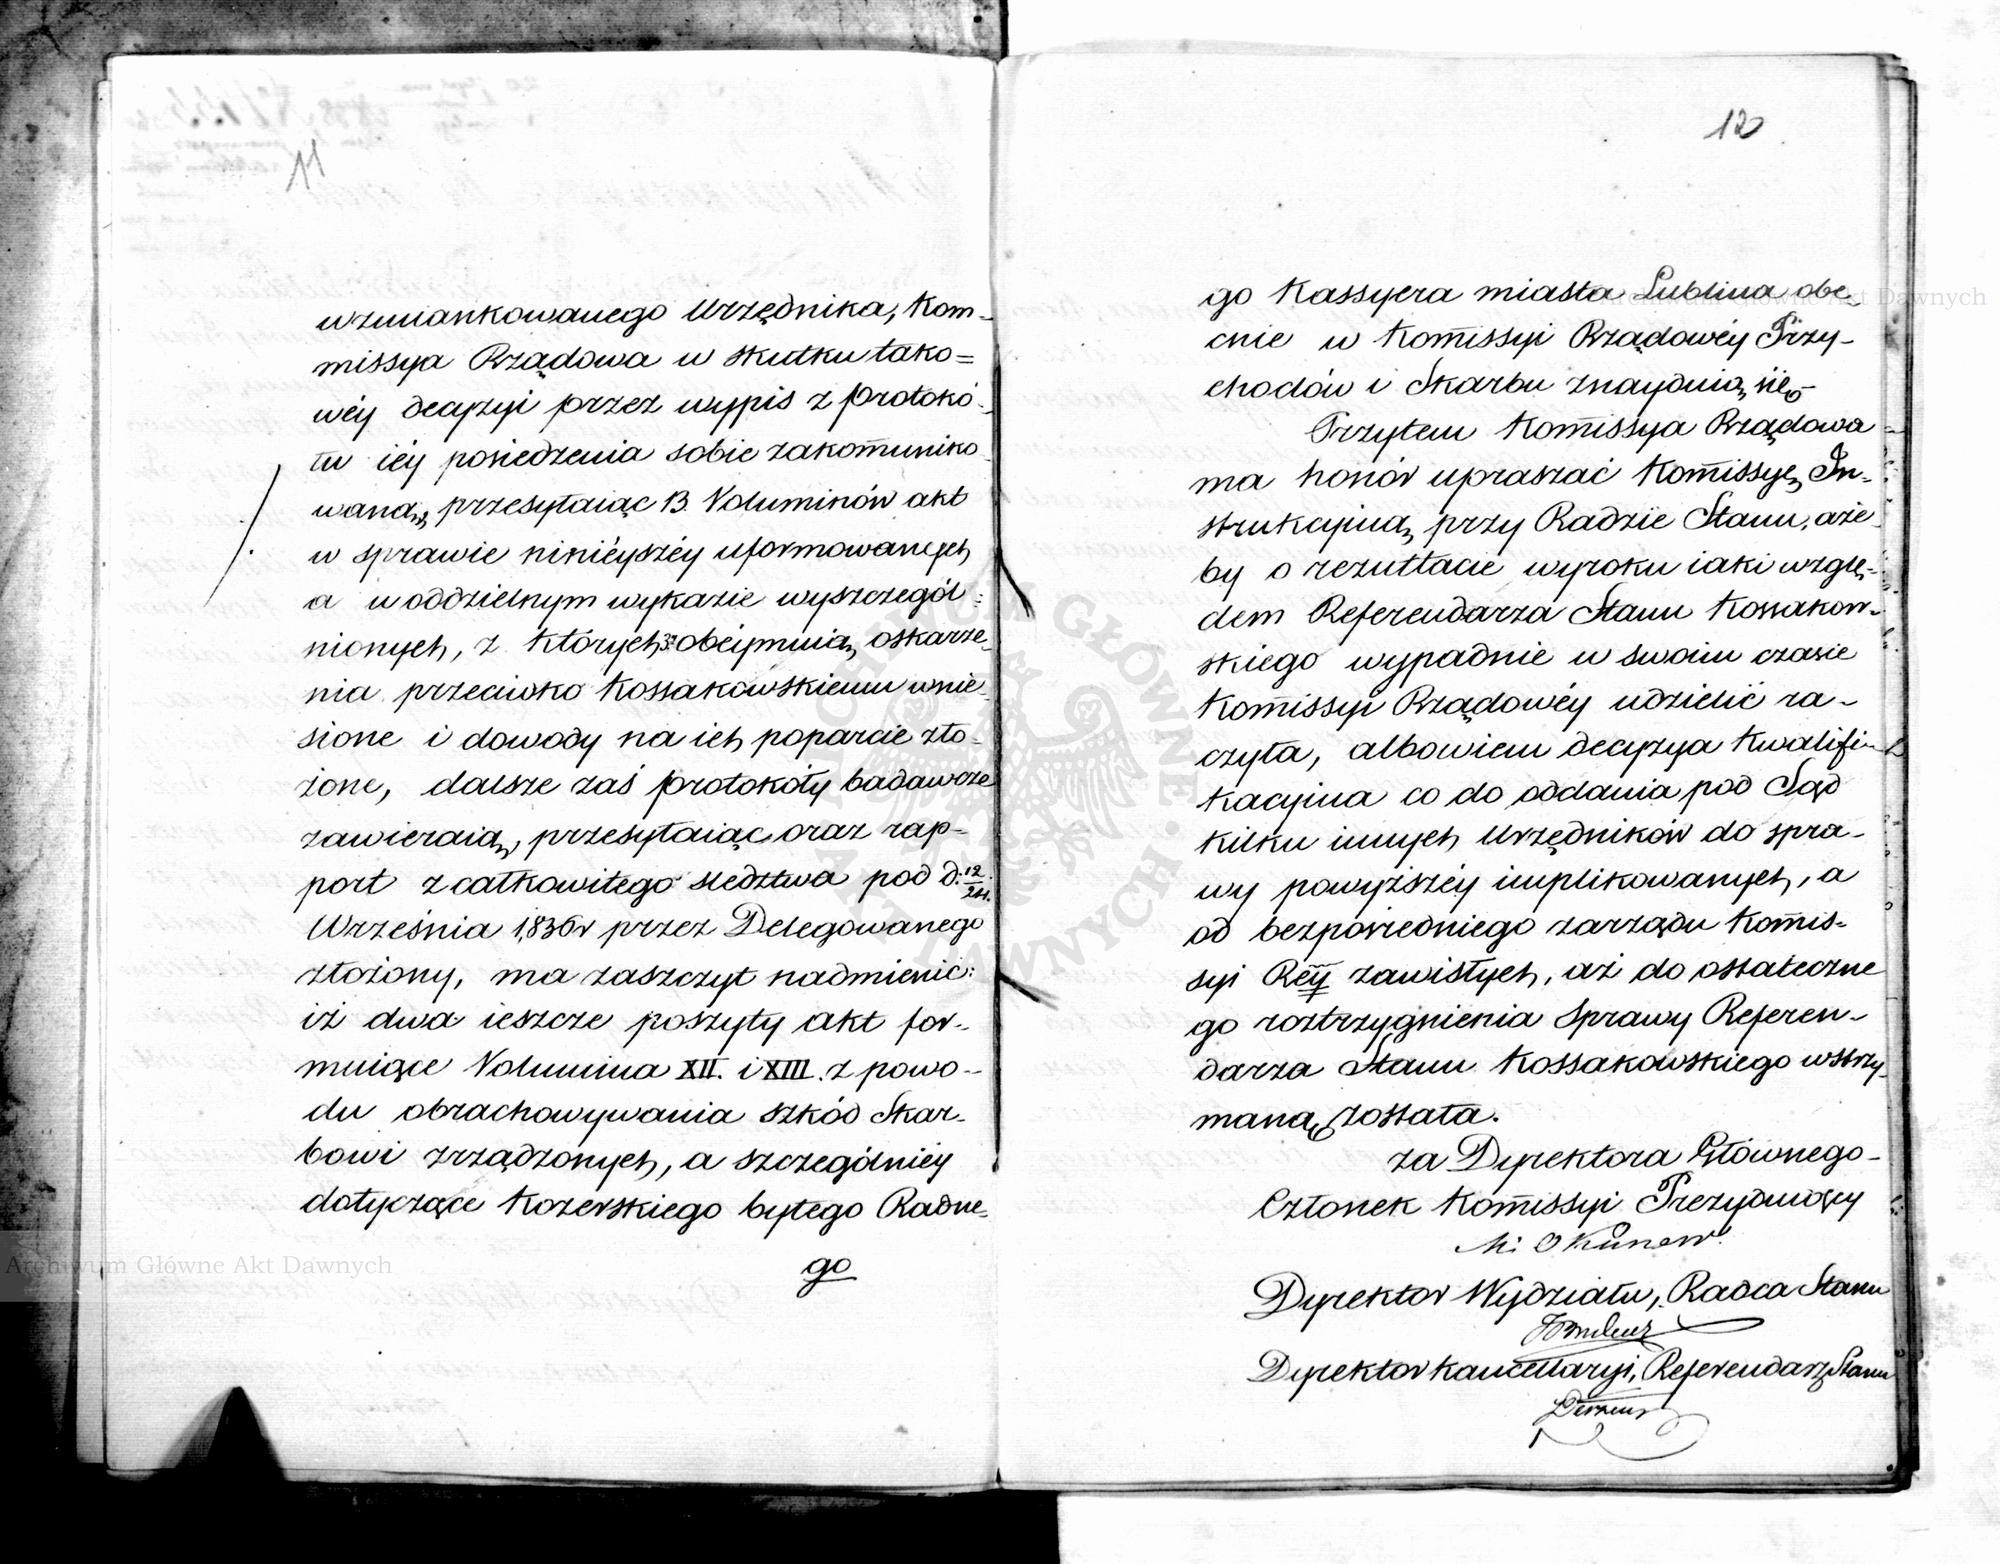 11
wzmiankowanego Urzędnika, Kom-
missya Rządowa w skutku tako=
wéy decyzyi przez wypis z protokó-
łu iéy posiedzenia sobie zakom̄uniko
waną, przesyłaiąc 13. Voluminów akt
w sprawie ninieyszéy uformowanych
a w oddzielnym wykazie wyszczegól=
nionych, z których obeymuią oskarże-
nia przeciwko Kossakowskiemu wnie-
sione i dowody na ich poparcie zło-
żone, dalsze zaś protokóły badawcze
zawieraią, przesyłaiąc oraz rap-
port z całkowitego śledztwa pod d: 12/24.
Września 1836 r przez Delegowanego
złożony, ma zaszczyt nadmienić:
iż dwa ieszcze poszyty akt for-
muiące Volumina XII. i XIII. z powo-
du obrachowywania szkód Skar-
bowi zrządzonych, a szczególniéy
dotyczące Kozerskiego byłego Radne-
go
12
go Kassyera miasta Lublina obe-
cnie w Kom̄issyi Rządowéy Przy-
chodów i Skarbu znayduią się
Przytem Kom̄issya Rządowa
ma honór upraszać Kom̄issyę In-
strukcyiną przy Radzie Stanu, aże-
by o rezultacie wyroku iaki wzglę-
dem Referendarza Stanu Kossakow-
skiego wypadnie w swoim czasie
Kom̄issyi Rządowéy udzielić ra-
czyła, albowiem decyzya Kwalifi-
kacyina co do oddania pod Sąd
kilku innych Urzędników do spra-
wy powyższéy implikowanych, a
od bezpośredniego zarządu Kom̄is-
syi Réy zawisłych, aż do ostateczne
go roztrzygnienia Sprawy Referen-
darza Stanu Kossakowskiego wstrzy-
maną została.
za Dyrektora Głównego-
Członek Kom̄issyi Prezyduiący
Mi Okunew
Dyrektor Wydziału, Radca Stanu
Dyrektor Kancellaryi, Referendarz Stanu
Archiwum Główne Akt Dawnych
Archiwum Główne Akt Dawnych
ARCHIWUM GŁÓWNE AKT DAWNYCH